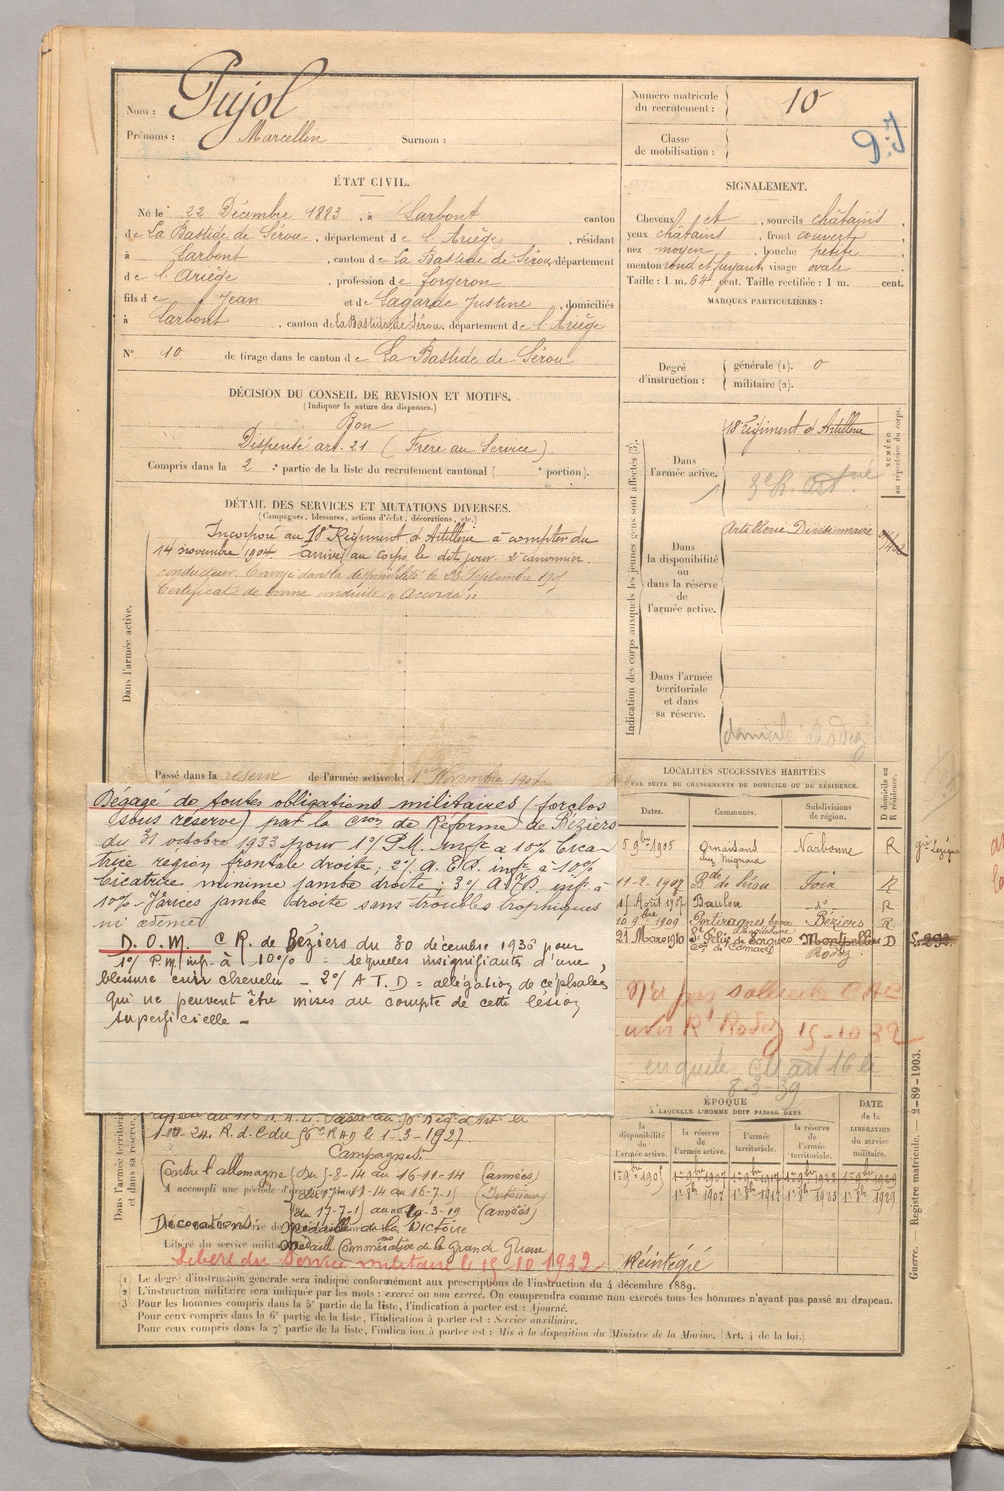 Nom : Pujol
Prénoms : Marcellin Surnom :
Numéro matricule du recrutement : 10
Classe de mobilisation :
ÉTAT CIVIL.
Né le 22 Décembre 1883, à Larbont canton
de La Bastide de Sérou, département de l'Ariège, résidant
à Larbont, canton de La Bastide de Sérou, département
de l'Ariège, profession de forgeron
fils de Jean et de Lagarde Justine, domiciliés
à Larbont, canton de La Bastide de Sérou, département de l'Ariège
N° 10 de tirage dans le canton de La Bastide de Sérou
SIGNALEMENT.
Cheveux et, sourcils châtains,
yeux châtains, front couvert,
nez moyen, bouche petite,
menton rond et fuyant, visage ovale.
Taille : 1 m. 64 cent. Taille rectifiée : 1 m. cent.
MARQUES PARTICULIÈRES :
Degré d'instruction : générale (1). 0
militaire (2).
DÉCISION DU CONSEIL DE REVISION ET MOTIFS.
(Indiquer la nature des dispenses.)
Bon
Dispensé art. 21 (Frère au Service).
Compris dans la 2e partie de la liste du recrutement cantonal ( e portion).
DÉTAIL DES SERVICES ET MUTATIONS DIVERSES.
(Campagnes, blessures, actions d'éclat, décorations, etc.)
Dans l'armée active.
Incorporé au 18e Régiment d'Artillerie à compter du
14 novembre 1904 arrivé au corps le dit jour. 2e canonnier
conducteur. Envoyé dans la disponibilité le 23 Septembre 1905
Certificat de bonne conduite "Accordé"
Passé dans la réserve de l'armée active le 1er Novembre 1907
Indication des corps auxquels les jeunes gens sont affectés (3).
NUMÉRO au répertoire du corps.
Dans l'armée active.
18e régiment d'Artillerie
3e R. Art
Dans la disponibilité ou dans la réserve de l'armée active.
Artillerie Divisionnaire
Dans l'armée territoriale et dans sa réserve.
domicile Rodez
Dégagé de toutes obligations militaires (forclos
sous réserve) par la Cson de Réforme de Béziers
du 31 octobre 1933 pour 1°/ P.M. infre à 10% Cica-
trice région frontale droite; 2°/ infre à 10%
Cicatrice minime jambe droite; 3°/ infre à
10% - Varices jambe droite sans troubles trophiques
ni œdème
D.O.M. C R. de Béziers du 30 décembre 1936 pour
1°/ P.M. inf. à 10% = séquelles insignifiantes d'une
blessure cuir chevelu - 2°/ A T. D = allégation de céphalées
qui ne peuvent être mises au compte de cette lésion
superficielle -
LOCALITÉS SUCCESSIVES HABITÉES
PAR SUITE DE CHANGEMENTS DE DOMICILE OU DE RÉSIDENCE.
Dates. Communes. Subdivisions de région. D domicile ou R résidence.
5 9bre 1905 Ornaisons Narbonne R
11-2-1907 Bde de Sérou Foix R
15 Août 1907 Baulou do R
10 9bre 1909 Portiragnes Béziers R
21 Mars 1910 St Félix de Sorgues Montpellier D
Rodez
N'a pas
R Rodez 15-10 32
enquête art 16 le
8-3-39
ÉPOQUE
À LAQUELLE L'HOMME DOIT PASSER DANS
DATE de la LIBÉRATION du service militaire.
la disponibilité de l'armée active.
la réserve de l'armée active.
l'armée territoriale.
la réserve de l'armée territoriale.
1er 9bre 1907
1er 8bre 1907
Dans l'armée territoriale et dans sa réserve.
1-1-24. R. d. C du R A D le 1-3-1927.
Campagnes
Contre l'allemagne du 5-8-14 au 16-11-14 (armées)
A accompli une période d'exercices
du 17-11-14 au 16-7-15 (Intérieur)
du 17-7-15 au 10-3-19 (armées)
Décorations : Médaille de la Victoire
Médaille Commémorative de la Grande Guerre
Libéré du service militaire le
Libéré du Service militaire le 15 10 1932 Réintégré
(1) Le degré d'instruction générale sera indiqué conformément aux prescriptions de l'instruction du 4 décembre 1889.
(2) L'instruction militaire sera indiquée par les mots : exercé ou non exercé. On comprendra comme non exercés tous les hommes n'ayant pas passé au drapeau.
(3) Pour les hommes compris dans la 5e partie de la liste, l'indication à porter est : Ajourné.
Pour ceux compris dans la 6e partie de la liste, l'indication à porter est : Service auxiliaire.
Pour ceux compris dans la 7e partie de la liste, l'indication à porter est : Mis à la disposition du Ministre de la Marine. (Art. 4 de la loi.)
Guerre. — Registre matricule. — 2-89-1903.